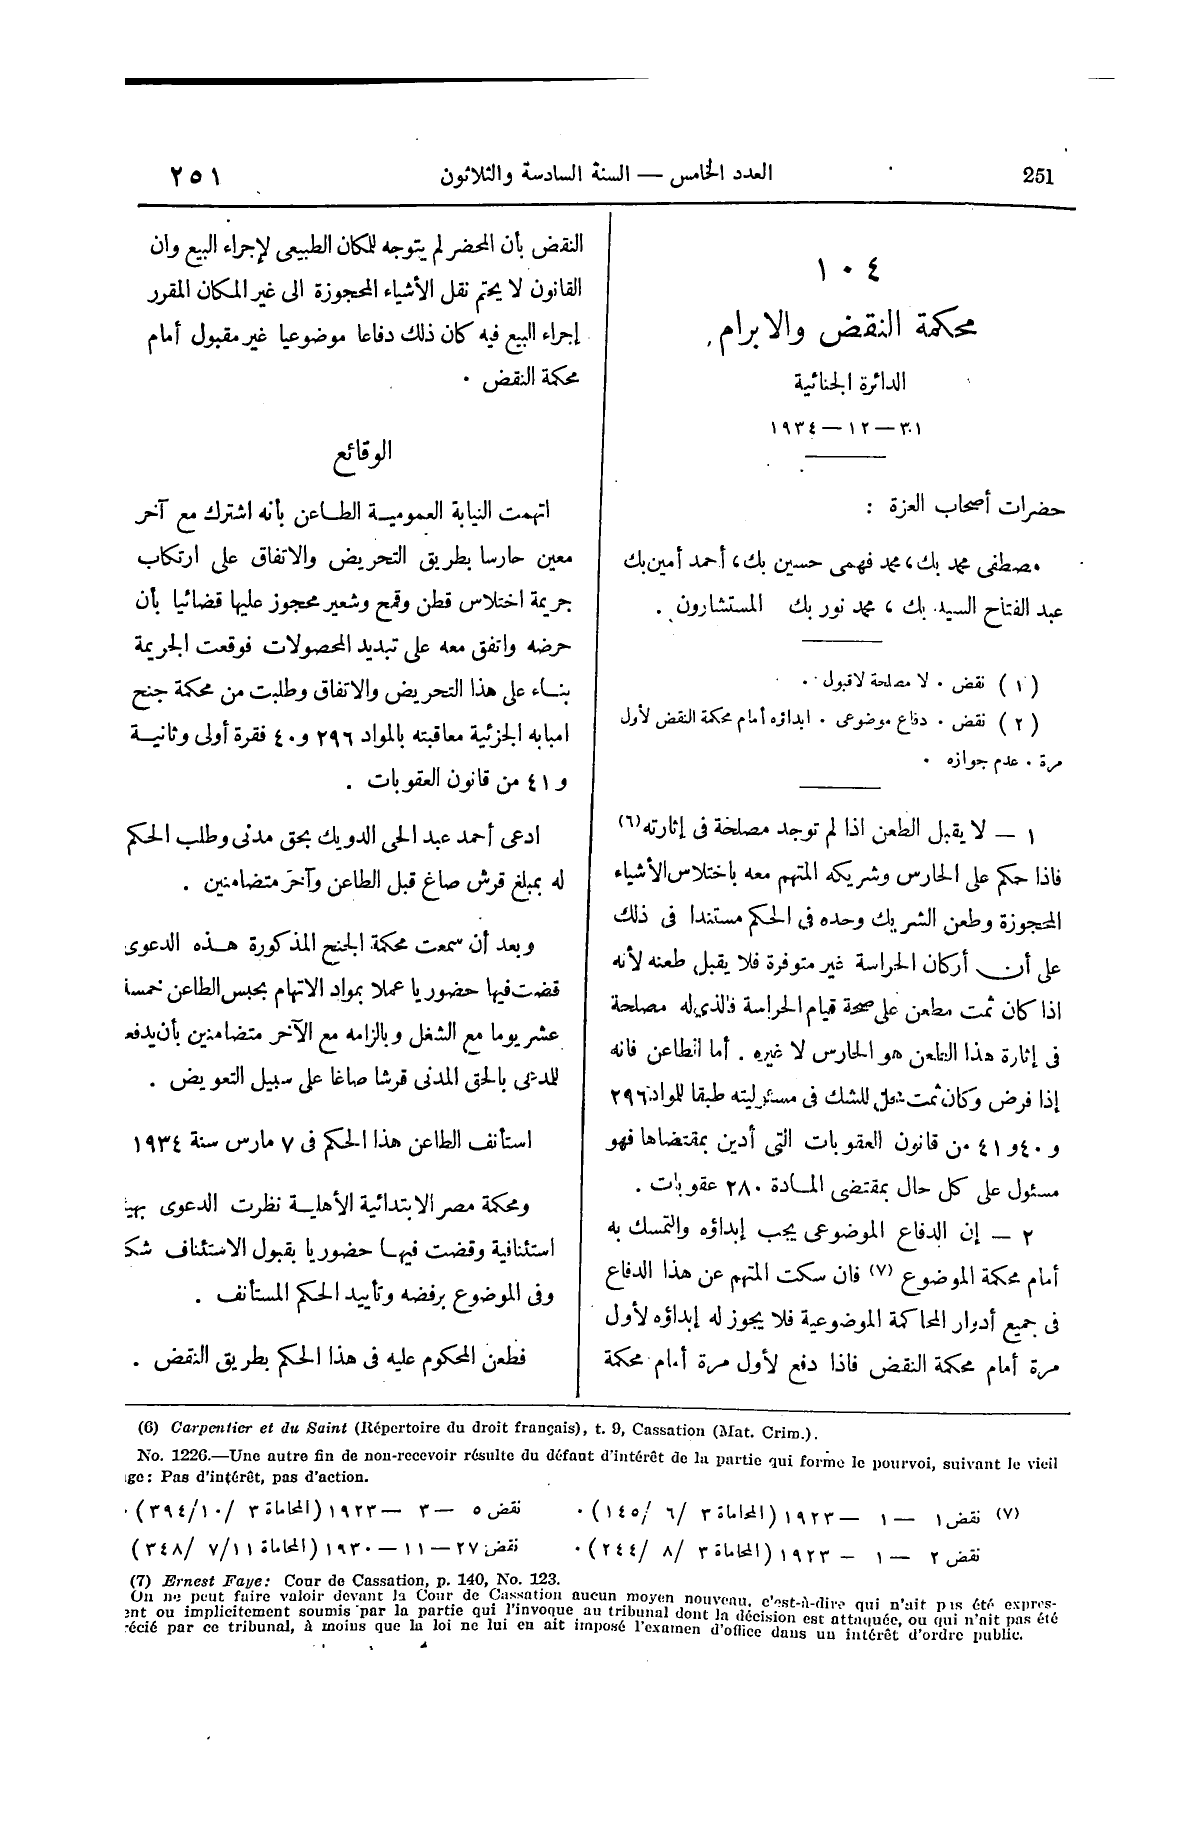 251 العدد الخامس — السنة السادسة والثلاثون ٢٥١
١٠٤
محكمة النقض والابرام
الدائرة الجنائية
٣١ — ١٢ — ١٩٣٤
حضرات أصحاب العزة :
مصطفى محمد بك، محمد فهمى حسين بك، أحمد أمين بك
عبد الفتاح السيد بك ، محمد نور بك المستشارون .
( ١ ) نقض . لا مصلحة لا قبول .
( ٢ ) نقض . دفاع موضوعى . ابداؤه أمام محكمة النقض لأول
مرة . عدم جوازه .
١ — لا يقبل الطعن اذا لم توجد مصلحة فى إثارته (٦)
فاذا حكم على الحارس وشريكه المتهم معه باختلاس الأشياء
المحجوزة وطعن الشريك وحده فى الحكم مستندا فى ذلك
على أن أركان الحراسة غير متوفرة فلا يقبل طعنه لأنه
اذا كان ثمت مطعن على صحة قيام الحراسة فالذى له مصلحة
فى إثارة هذا الطعن هو الحارس لا غيره . أما الطاعن فانه
إذا فرض وكان ثمت محل للشك فى مسئوليته طبقا للمواد ٢٩٦
و ٤٠ و ٤١ من قانون العقوبات التى أدين بمقتضاها فهو
مسئول على كل حال بمقتضى المادة ٢٨٠ عقوبات .
٢ — إن الدفاع الموضوعى يجب إبداؤه والتمسك به
أمام محكمة الموضوع (٧) فان سكت المتهم عن هذا الدفاع
فى جميع أدوار المحاكمة الموضوعية فلا يجوز له إبداؤه لأول
مرة أمام محكمة النقض فاذا دفع لأول مرة أمام محكمة
النقض بأن المحضر لم يتوجه للمكان الطبيعى لإجراء البيع وان
القانون لا يحتم نقل الأشياء المحجوزة الى غير المكان المقرر
إجراء البيع فيه كان ذلك دفاعا موضوعيا غير مقبول أمام
محكمة النقض .
الوقائع
اتهمت النيابة العمومية الطاعن بأنه اشترك مع آخر
معين حارسا بطريق التحريض والاتفاق على ارتكاب
جريمة اختلاس قطن وقمح وشعير محجوز عليها قضائيا بأن
حرضه واتفق معه على تبديد المحصولات فوقعت الجريمة
بناء على هذا التحريض والاتفاق وطلبت من محكمة جنح
امبابه الجزئية معاقبته بالمواد ٢٩٦ و ٤٠ فقرة أولى وثانية
و ٤١ من قانون العقوبات .
ادعى أحمد عبد الحى الدويك بحق مدنى وطلب الحكم
له بمبلغ قرش صاغ قبل الطاعن وآخر متضامنين .
وبعد أن سمعت محكمة الجنح المذكورة هذه الدعوى
قضت فيها حضوريا عملا بمواد الاتهام بحبس الطاعن خمسة
عشر يوما مع الشغل وبالزامه مع الآخر متضامنين بأن يدفعا
للمدعى بالحق المدنى قرشا صاغا على سبيل التعويض .
استأنف الطاعن هذا الحكم فى ٧ مارس سنة ١٩٣٤
ومحكمة مصر الابتدائية الأهلية نظرت الدعوى بهيئة
استئنافية وقضت فيها حضوريا بقبول الاستئناف شكلا
وفى الموضوع برفضه وتأييد الحكم المستأنف .
فطعن المحكوم عليه فى هذا الحكم بطريق النقض .
(6) Carpentier et du Saint (Répertoire du droit français), t. 9, Cassation (Mat. Crim.).
No. 1226.—Une autre fin de non-recevoir résulte du défaut d'intérêt de la partie qui forme le pourvoi, suivant le vieil
ge: Pas d'intérêt, pas d'action.
(٧) نقض ١ — ١ — ١٩٢٣ (المحاماة ٣ / ٦ / ١٤٥) . نقض ٥ — ٣ — ١٩٢٣ (المحاماة ٣ / ١٠ / ٣٩٤) .
نقض ٢ — ١ — ١٩٢٣ (المحاماة ٣ / ٨ / ٢٤٤) . نقض ٢٧ — ١١ — ١٩٣٠ (المحاماة ١١ / ٧ / ٣٤٨)
(7) Ernest Faye: Cour de Cassation, p. 140, No. 123.
On ne peut faire valoir devant la Cour de Cassation aucun moyen nouveau, c'est-à-dire qui n'ait pas été expres-
ent ou implicitement soumis par la partie qui l'invoque au tribunal dont la décision est attaquée, ou qui n'ait pas été
écié par ce tribunal, à moins que la loi ne lui en ait imposé l'examen d'office dans un intérêt d'ordre public.